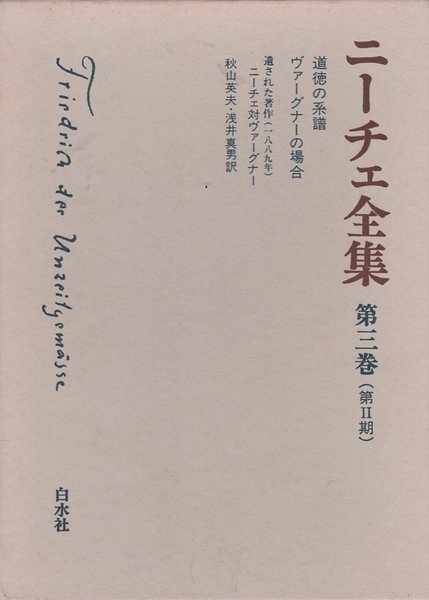 ニーチェ全集 第三巻(第II期)
道徳の系譜
ヴァーグナーの場合
遺された著作(一八八九年)
ニーチェ対ヴァーグナー
秋山英夫・浅井真男訳
Friedrich der Unzeitgemässe
白水社